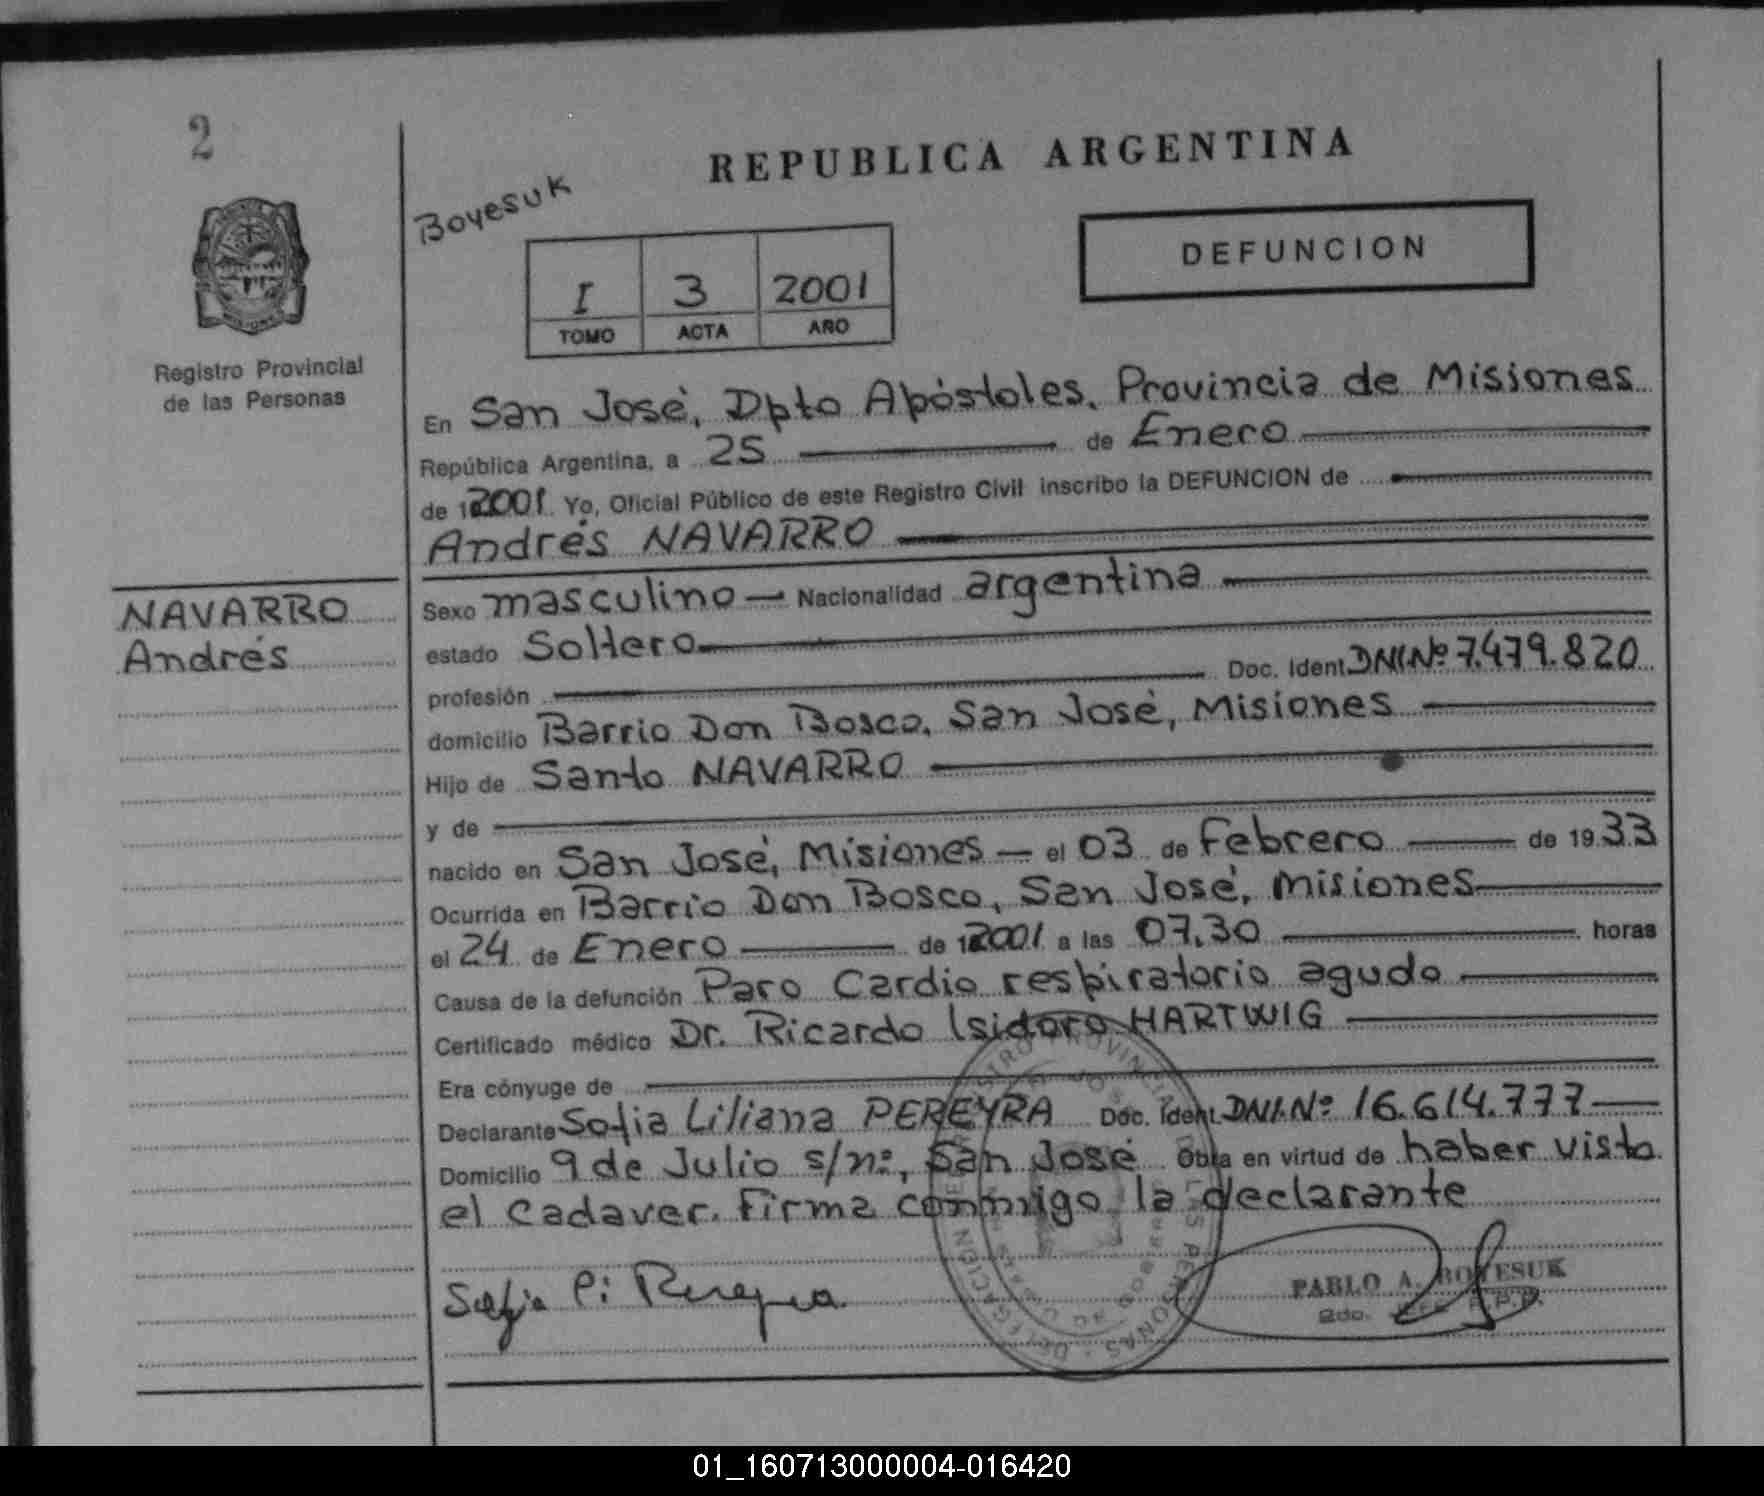 2
REPUBLICA ARGENTINA
Boyesuk
DEFUNCION
I 3 2001
TOMO ACTA AÑO
Registro Provincial
de las Personas
En San José, Dpto Apóstoles, Provincia de Misiones
República Argentina, a 25 de Enero
de 2001 Yo, Oficial Público de este Registro Civil inscribo la DEFUNCION de
Andrés NAVARRO
NAVARRO
Andrés
Sexo masculino Nacionalidad argentina
estado Soltero
profesión Doc. Ident. DNI.Nº 7.479.820
domicilio Barrio Don Bosco, San José, Misiones
Hijo de Santo NAVARRO
y de
nacido en San José, Misiones el 03 de Febrero de 1933
Ocurrida en Barrio Don Bosco, San José, Misiones
el 24 de Enero de 2001 a las 07,30 horas
Causa de la defunción Paro Cardio respiratorio agudo
Certificado médico Dr. Ricardo Isidoro HARTWIG
Era cónyuge de
Declarante Sofia Liliana PEREYRA Doc. Ident. DNI.Nº 16.614.777
Domicilio 9 de Julio s/nº, San José Obra en virtud de haber visto
el cadaver. Firma conmigo la declarante
PABLO A. BOYESUK
2do.
01_160713000004-016420